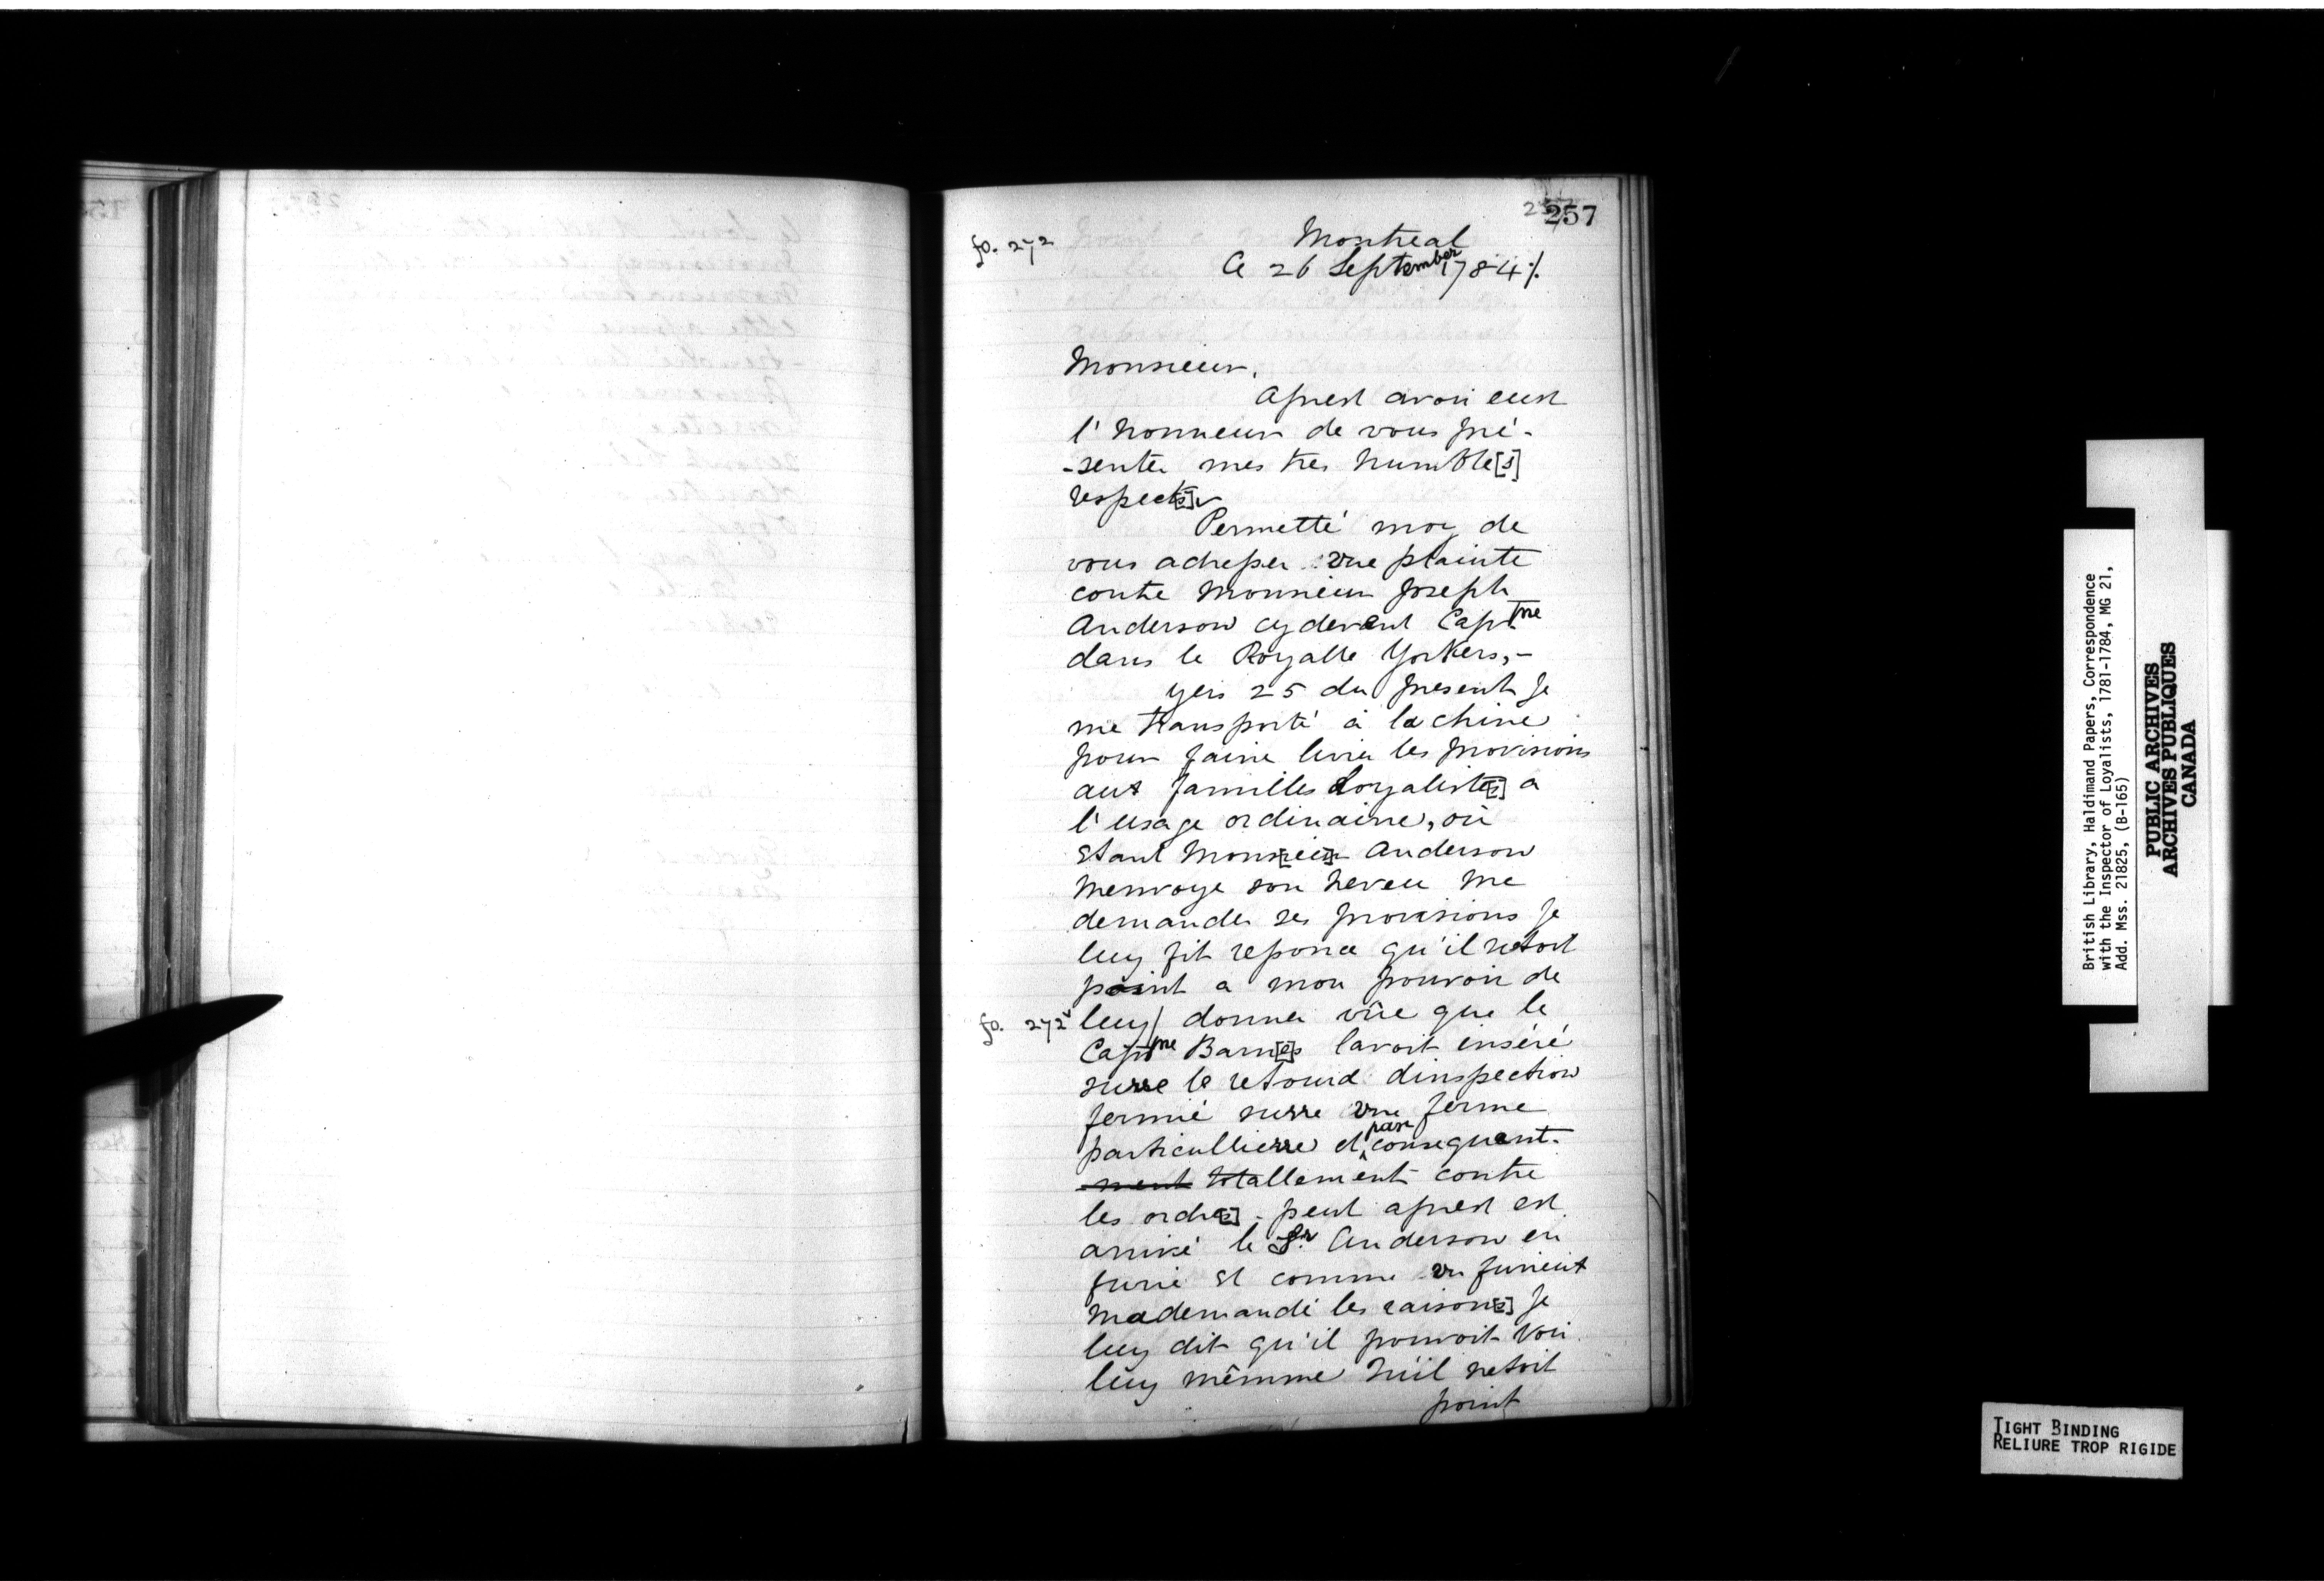 257
fo. 272
Montreal
Ce 26 September 1784 /.
Monsieur,
Aprest avoir eust
l'honneur de vous pré-
-senter mes tres humble[s]
respect[s]
Permetté moy de
vous adresser vne plainte
contre Monsieur Joseph
Anderson cy devent Captne
dans le Royalle Yorkers, -
yers 25 du present je
me transporté à la chine
pour faire livrer les provisions
aux familles Loyaliste[s] a
l'usage ordinaire, où
Etant Mons[ieu]r Anderson
menvoye son neveu me
demander ses provisions je
luy fit reponce qu'il netoit
point a mon pouvoir de
fo. 272v luy / donner vûe que le
Captne Barn[e]s lavoit inséré
surre le retourd dinspection
fermié surre vne ferme
particullierre et parr consequent-
ment totallement contre
les ordre[s] - peut aprest est
arrivé le Sr. Anderson en
furie et comme vn furieut
ma demandé les raison[s] je
luy dit qu'il pouvoit voir
luy mêmme n'uil netoit
point
British Library, Haldimand Papers, Correspondence
with the Inspector of Loyalists, 1781-1784, MG 21,
Add. Mss. 21825, (B-165)
PUBLIC ARCHIVES
ARCHIVES PUBLIQUES
CANADA
TIGHT BINDING
RELIURE TROP RIGIDE